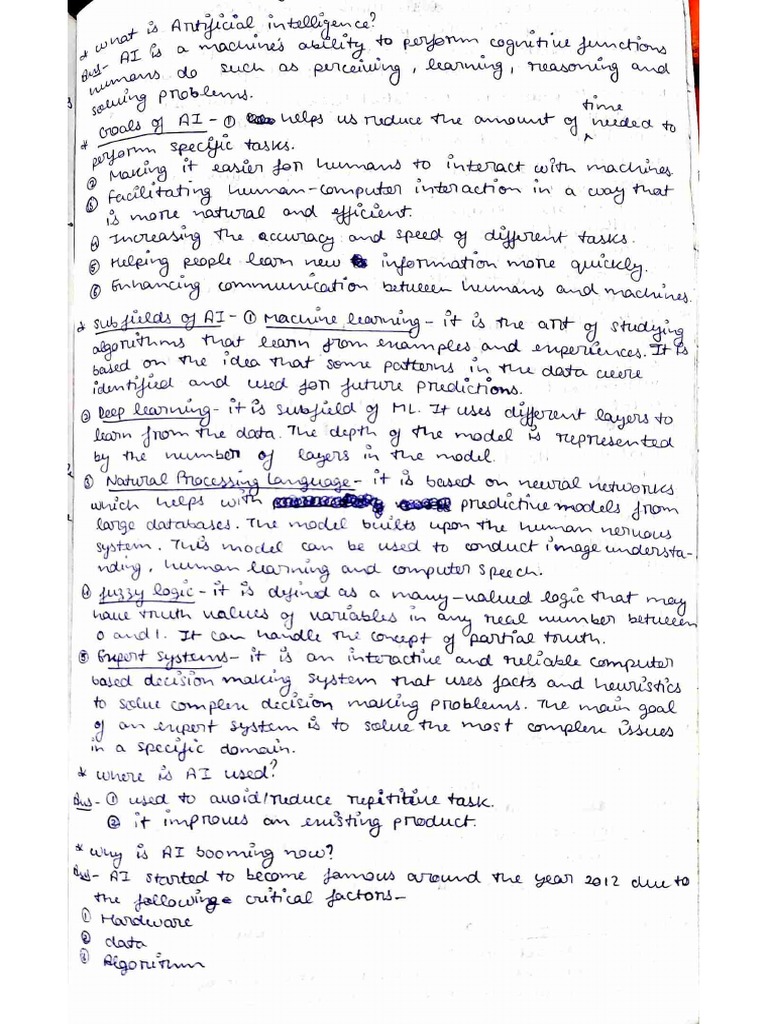 * What is Artificial intelligence?
Ans- AI is a machine's ability to perform cognitive functions
humans do such as perceiving, learning, reasoning and
solving problems.
* Goals of AI - ① helps us reduce the amount of time needed to
perform specific tasks.
② Making it easier for humans to interact with machines
③ Facilitating human-computer interaction in a way that
is more natural and efficient.
④ Increasing the accuracy and speed of different tasks.
⑤ Helping people learn new information more quickly.
⑥ Enhancing communication between humans and machines.
* Subfields of AI - ① Machine learning - it is the art of studying
algorithms that learn from examples and experiences. It is
based on the idea that some patterns in the data were
identified and used for future predictions.
② Deep learning - it is subfield of ML. It uses different layers to
learn from the data. The depth of the model is represented
by the number of layers in the model.
③ Natural Processing Language - it is based on neural networks
which helps with predictive models from
large databases. The model builts upon the human nervous
system. This model can be used to conduct image understa-
nding, human learning and computer speech.
④ fuzzy logic - it is defined as a many-valued logic that may
have truth values of variables in any real number between
0 and 1. It can handle the concept of partial truth.
⑤ Expert systems - it is an interactive and reliable computer
based decision making system that uses facts and heuristics
to solve complex decision making problems. The main goal
of an expert system is to solve the most complex issues
in a specific domain.
* where is AI used?
Ans - ① used to avoid/reduce repititive task.
② it improves an existing product.
* Why is AI booming now?
Ans - AI started to become famous around the year 2012 due to
the following critical factors-
① Hardware
② data
③ Algorithm